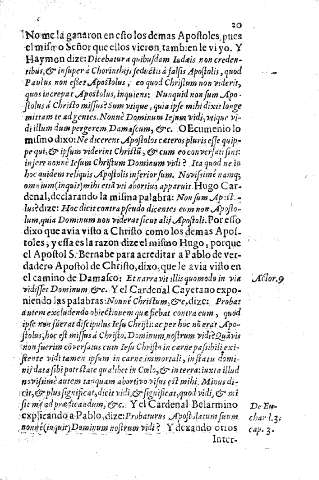 20
No me la ganaron en esto los demas Apostoles, pues
el mismo Señor que ellos vieron, tambien le vi yo. Y
Haymon dize: Dicebatur à quibusdam Iudæis non creden-
tibus, & insuper à Chorinthijs seductis à falsis Apostolis, quod
Paulus non esset Apostolus, eo quod non viderit,
quos increpat Apostolus, inquiens: Nunquid non sum Apo-
stolus à Christo missus? Sum vtique, quia ipse mihi dixit longe
mittam te ad gentes. Nonnè Dominum Iesum vidi, vtique vi-
di illum dum pergerem Damascum, &c. O Ecumenio lo
mismo dixo: Ne dicerent Apostolos cæteros pluris esse quip-
pe qui, & ipsum viderint Christũ, & cum eo conversati sint:
infert nonnè Iesum Christum Dominum vidi? Ita quod ne in
hoc quidem reliquis Apostolis inferior sum. Novissimè namq;
omnium (inquit) mihi etiã vti abortivo apparuit. Hugo Car-
denal, declarando la misma palabra: Non sum Apost-
lus? dize: Hoc dicit contra pseudo dicentes eum non Aposto-
lum, quia Dominum non viderat sicut alij Apostoli. Por esso
dixo que avia visto a Christo como los demas Apos-
toles, y essa es la razon dize el mismo Hugo, porque
el Apostol S. Bernabe para acreditar a Pablo de ver-
dadero Apostol de Christo, dixo, que le avia visto en
el camino de Damasco: Et narravit illis quomodo in via
Actor. 9
vidisset Dominum &c. Y el Cardenal Cayetano expo-
niendo las palabras: Nonnè Christum, &c, dize: Probat
autem excludendo obiectionem quæ fiebat contra eum, quod
ipse non fuerat discipulus Iesu Christi: ac per hoc nõ erat Apo-
stolus, hoc est missus à Christo, Dominum nostrum vidi? Quãvis
non fuerim cõversatus cum Iesu Christo in carne passibili exi-
stente vidi tamen ipsum in carne immortali, in statu domi-
nij data sibi potestate quæ est in Cælo, & in terra: iuxta illud
novissimè autem tanquam abortivo visus est mihi. Minus di-
cit, & plus significat, dicit vidi, & significat, quod vidi, & mi
sit me ad prædicandum, &c. Y el Cardenal Belarmino
De Eu-
explicando a Pablo, dize: Probaturus Apostolatum suum
char. l. 3.
nonnè (inquit) Dominum nostrum vidi? Y dexando otros
cap. 3.
Inter-